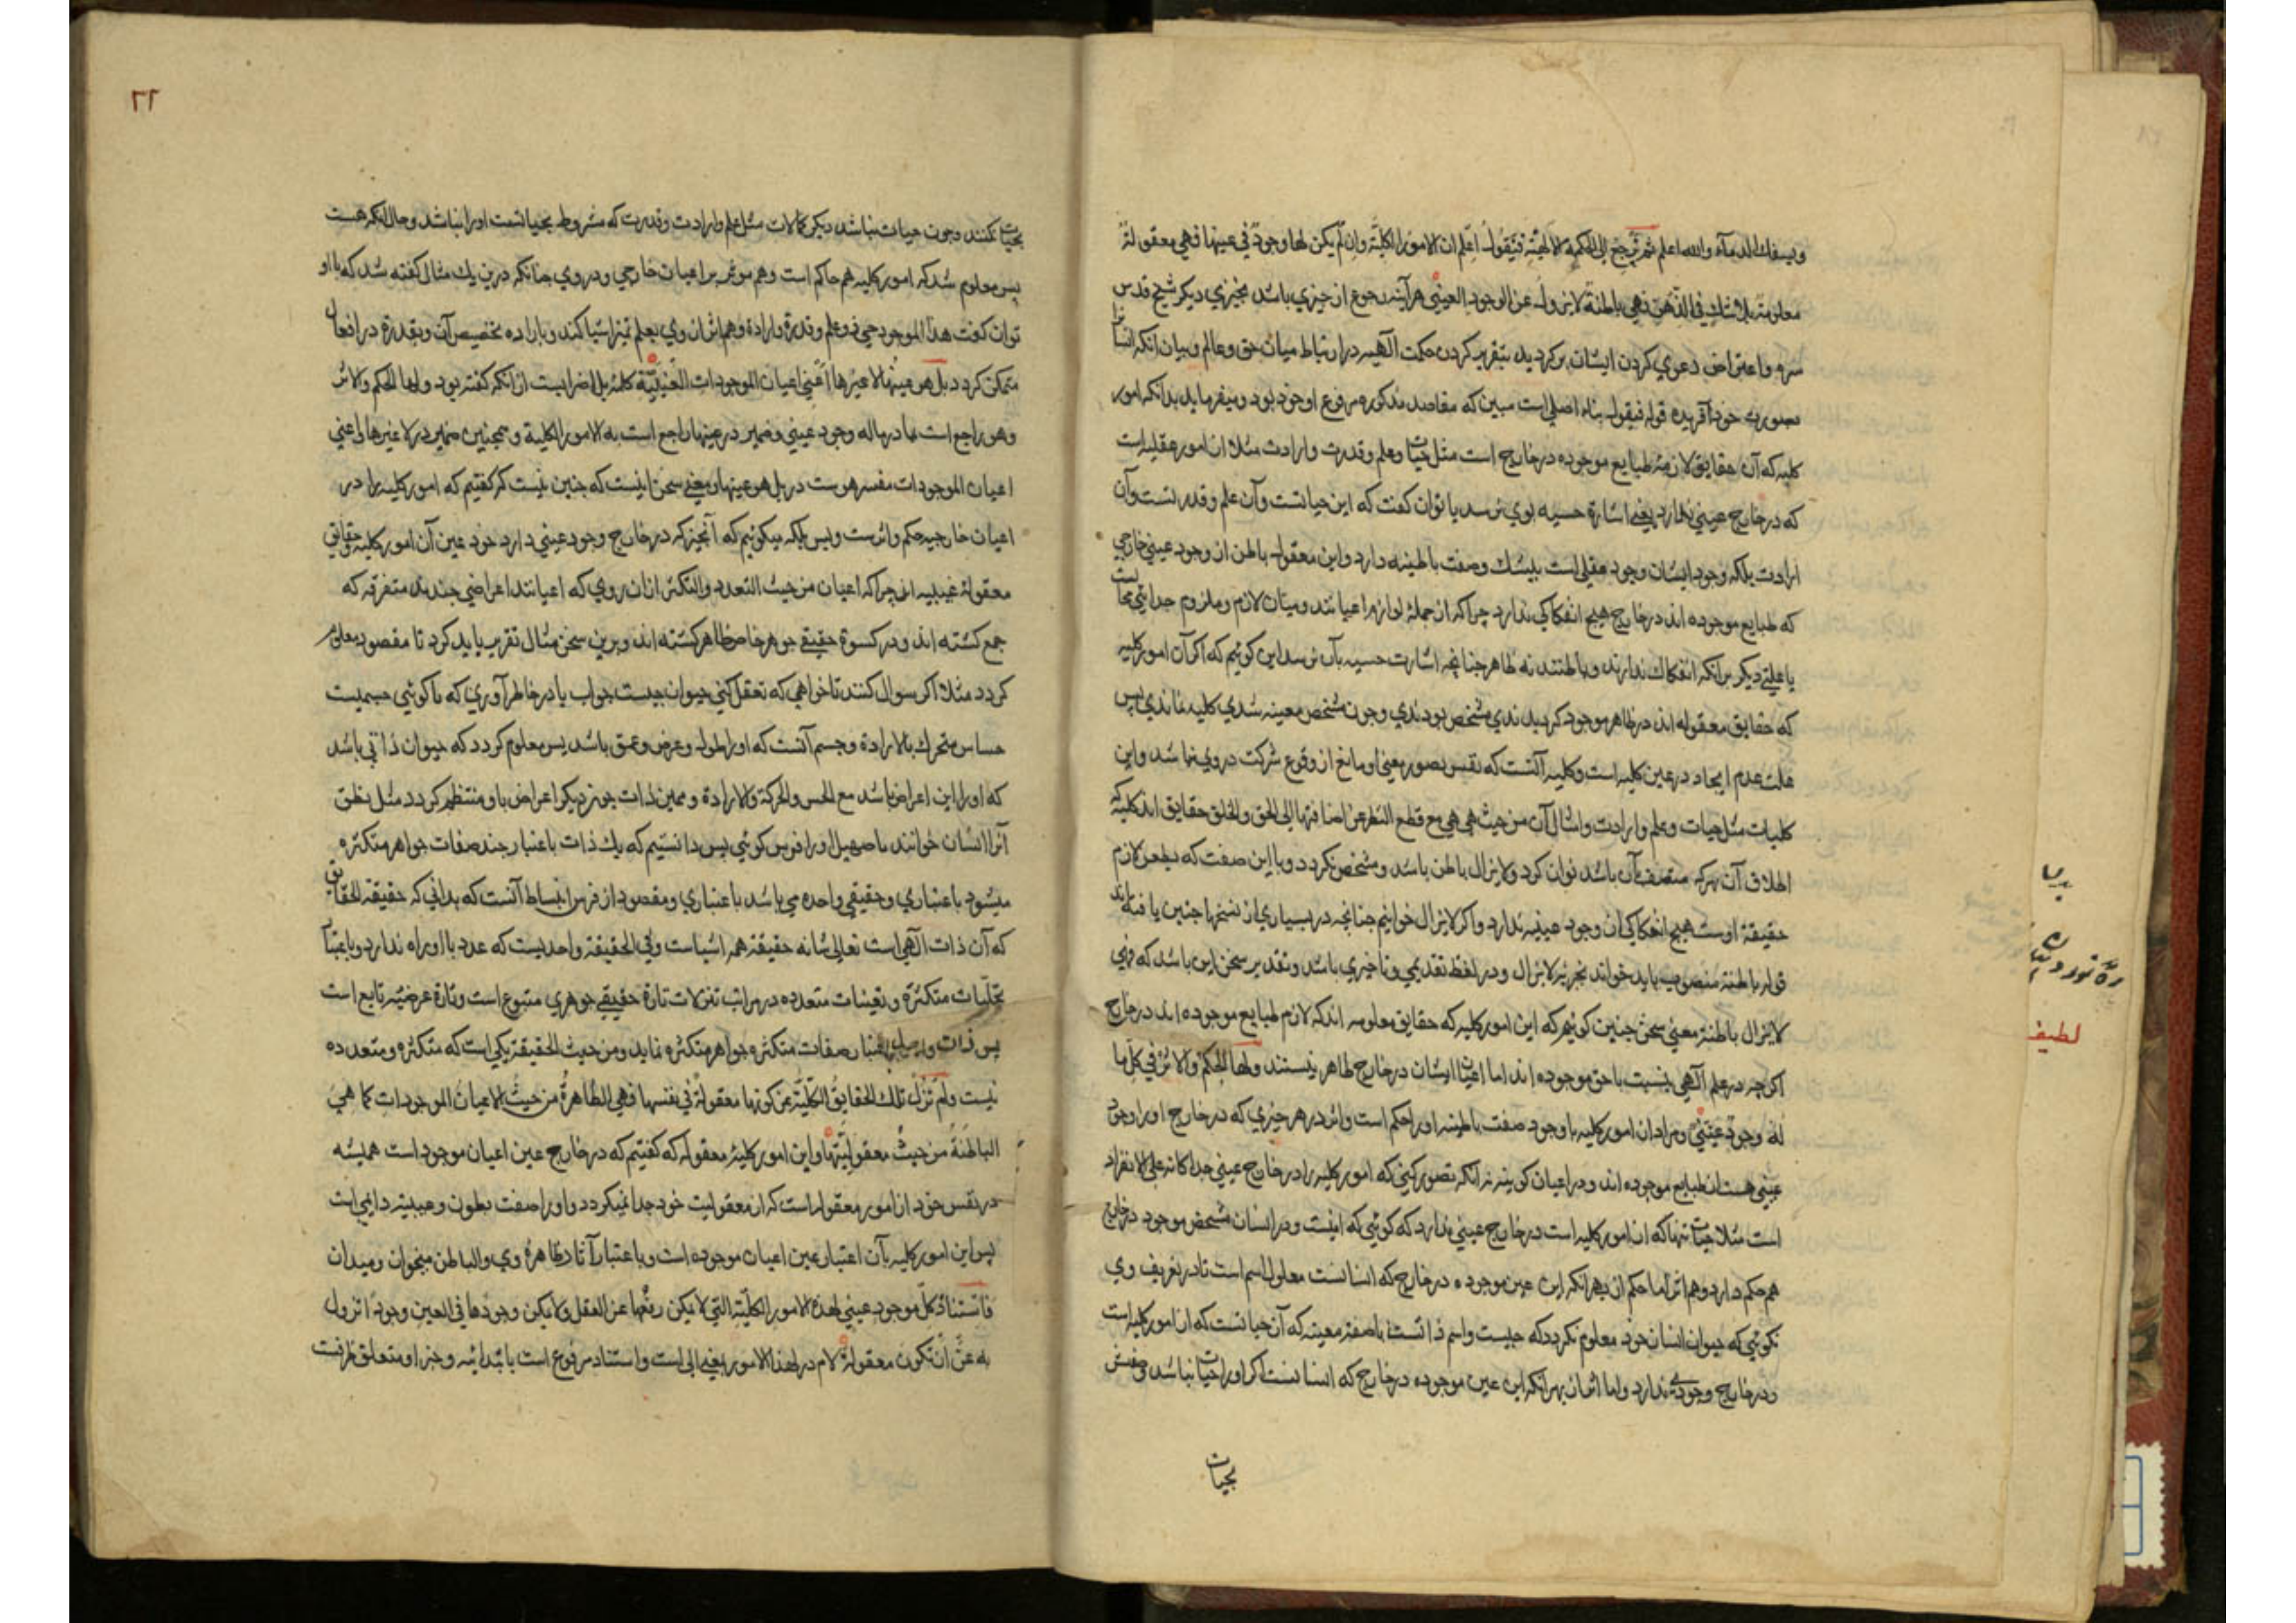 ويسفك الدماء والله اعلم ثم نرجع الى الحكمة الالهيّة فنقول اعلم ان الامور الكليّة وان لم يكن لها وجود في عينها فهي معقولة
معلومة بلا شك في الذهن فهي باطنة لا يزول عن الوجود العيني هر آينه رجوع از چيزي باشد بچيزي ديكر شيخ قدس
سره واعتراض دعوي كردن ايشان بركرديد بتقرير كردن حكمت الهيه در ارتباط ميان حق وعالم وبيان انكه انسانرا
بصورت خود آفريده قوله فنقول بناء اصلي است مبين كه مقاصد مذكوره مرفوع او خود بود وميفرمايد بدانكه امور
كليه كه آن حقايق لازمه طبايع موجوده در خارج است مثل حيات وعلم وقدرت وارادت مثلا ان امور عقليه است
كه در خارج عيني ندارد يعني اشارة حسيه بوي نرسد يا توان كفت كه اين حياتست وآن علم وقدرتست وآن
ارادت بلكه وجود ايشان وجود عقلي است بيشك وصفت باطنيه دارد واين معقول باطن از وجود عيني خارجي
كه طبايع موجوده اند در خارج هيچ انفكاكي ندارد چراكه از جمله لوازم اعيانند وميان لازم وملزوم جدايي
يا علتي ديكر برانكه انفكاك ندارند وباطنند نه ظاهر چنانچه اشارت حسيه بآن نرسد اين كوئيم كه اكر آن امور كليه
كه حقايق معقوله اند در ظاهر موجود كرديدندي مشخص بودندي وچون مشخص معينه شدي كليه نماندي پس
علت عدم ايجاد در عين كليه است وكليه آنست كه نفس تصور معني او مانع از وقوع شركت در وي نباشد واين
كليات مثل حيات وعلم وارادت وامثال آن من حيث هي هي مع قطع النظر عن اضافتها الى الحق والخلق حقايق اند كليه كه
اطلاق آن بهركه متصف بآن باشد توان كرد ولا يزال باطن باشد ومشخص نكردد وبا اين صفت كه بطن لازم
حقيقة اوست هيچ انفكاكي از وجود عينيه ندارد واكر لا يزال خوانيم چنانچه در بسياري از نسخها چنين يافته اند
قوله باطنة منصوب بايد خواند بخبر لا يزال ودر لفظ تقديمي وتاخيري باشد وتقدير سخن اين باشد كه فهي
لا يزال باطنة معني سخن چنين كوئيم كه اين امور كليه كه حقايق معلومه اند كه لازم طبايع موجوده اند در خارج
اكرچه در علم آلهي بنسبت با حق موجوده اند اما اعيان ايشان در خارج ظاهر نيستند ولها الحكم والاثر في كل ما
له وجود عيني ومراد ان امور كليه با وجود صفت باطنيه او را حكم است واثر در هر چيزي كه در خارج او را وجود
عيني هست از طبايع موجوده اند ودر اعيان كونيه نه انكه تصور كني كه امور كليه را در خارج عيني جداكانه على الانفراد
است مثلا حيات تنها كه ان امور كليه است در خارج عيني ندارد كه كوئي كه اينست ودر انسان مشخص موجود در خارج
هم حكم دارد وهم اثر اما حكم از بهر انكه اين عين موجوده در خارج كه انسانست معلول اسم است تا در تعريف وي
نكوئي كه حيوان انسان خود معلوم نكردد كه چيست واسم ذاتست با صفة معينه كه آن حياتست كه از امور كليه است
ودر خارج وجودي ندارد واما اثر ان بهر انكه اين عين موجوده در خارج كه انسانست اكر او را حيات نباشد وصفش
بحيات
بحيات نكنند وچون حيات نباشد ديكر كمالات مثل علم وارادت وقدرت كه مشروط بحياتست او را نباشد وحال انكه هست
پس معلوم شد كه امور كليه هم حاكم است وهم موثر بر اعيان خارجي ودر وي چنانكه درين يك مثال كفته شد كه با او
توان كفت هذا الموجود حي ذو علم وقدرة وارادة وهم اثر ان وي بعلم تميز اشيا كند وباراده تخصيص آن وبقدرة در افعال
متمكن كردد بل هو عينها لا غيرها اعني اعيان الموجودات العينيّة كلمة بل اضرابست از انكه كفته بود ولها الحكم والاثر
وهو راجع است بما در ما له وجود عيني وضمير در عينها راجع است به الامور الكلية وهمچنين ضمير در لا غيرها واعني
اعيان الموجودات مفسر هوست در بل هو عينها ومعني سخن اينست كه چنين نيست كه كفتيم كه امور كليه را در
اعيان خارجيه حكم واثرست وبس بلكه ميكوئيم كه آنچيز كه در خارج وجود عيني دارد خود عين آن امور كليه وحقايق
معقولة غيبيه اند چراكه اعيان من حيث التعدد والتكثر ازان روي كه اعيانند اعراضي چندند متفرقه كه
جمع كشته اند ودر كسوة حقيقي جوهر خاص ظاهر كشته اند وبرين سخن مثال تقرير بايد كرد تا مقصود معلوم
كردد مثلا اكر سوال كنند تا خواهي كه تعقل كني حيوان چيست جواب يا در خاطر آوري كه تا كوئي جسميست
حساس متحرك بالارادة وجسم آنست كه او را طول وعرض وعمق باشد پس معلوم كردد كه حيوان ذاتي باشد
كه او را اين اعراض باشد مع الحس والحركة والارادة وهمين ذات چون ديكر اعراض با او منتظم كردد مثل نطق
آنرا انسان خوانند يا صهيل او را فرس كوئي پس دانستيم كه يك ذات باعتبار چند صفات جواهر متكثره
ميشود باعتباري وحقيقي واحده مي باشد باعتباري ومقصود از فرس انبساط آنست كه بداني كه حقيقة الحقايق
كه آن ذات آلهي است تعالى شانه حقيقة همه اشياست وفي الحقيقة واحديست كه عدد با او راه ندارد وباعتبار
تجليات متكثرة وتعينات متعدده در مراتب تنزلات تارة حقيقي جوهري متبوع است وتارة عرضيه تابع است
پس ذات واحد باعتبار صفات متكثره جواهر متكثره نمايد ومن حيث الحقيقة يكي است كه متكثره ومتعدده
نيست ولم تزل تلك الحقايق الكليّة عن كونها معقولة في نفسها فهي الظاهرة من حيث الاعيان الموجودات كما هي
الباطنة من حيث معقوليتها واين امور كليه معقوله كه كفتيم كه در خارج عين اعيان موجود است هميشه
در نفس خود ان امور معقوله است كه از معقوليت خود جدا نميكردد واو را صفت بطون وغيبيه دايمي است
پس اين امور كليه بآن اعتبار عين اعيان موجوده است وباعتبار آثار ظاهرة وي والباطن ميخوان وميدان
فاستناد كل موجود عيني لهذه الامور الكليّة التي لا يمكن رفعها عن العقل ولا يمكن وجودها في العين وجودا تزول
به عن ان تكون معقولة لام در لهذه الامور بمعني الى است واستناد مرفوع است بابتدائيه وخبر او متعلق ظرفست
٢٦
لطيف